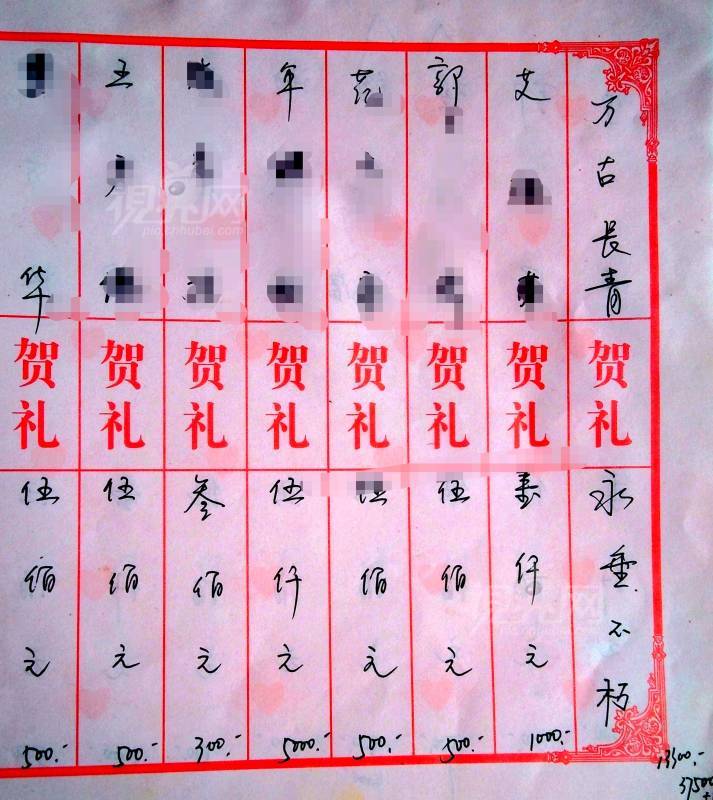 万古長青 贺礼 永垂不朽
艾 贺礼 壹仟元 1000.-
郭 贺礼 伍佰元 500.-
贺礼 佰元 500.-
牟 贺礼 伍仟元 5000.-
贺礼 叁佰元 300.-
王 贺礼 伍佰元 500.-
华 贺礼 伍佰元 500.-
13300.-
37500
視界网
pic.cnhubei.com